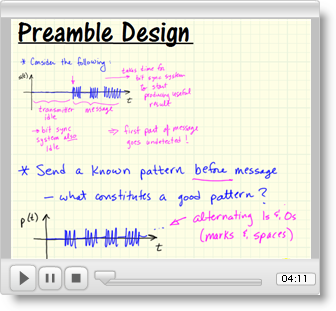 Preamble Design
* Consider the following:
s(t)
takes time for
bit sync system
to start
producing useful
result
t
transmitter
idle
message
→ bit sync
system also
idle
⇒ first part of message
goes undetected!
* Send a known pattern before message
- what constitutes a good pattern?
p(t)
...
alternating 1s & 0s
(marks & spaces)
t
04:11